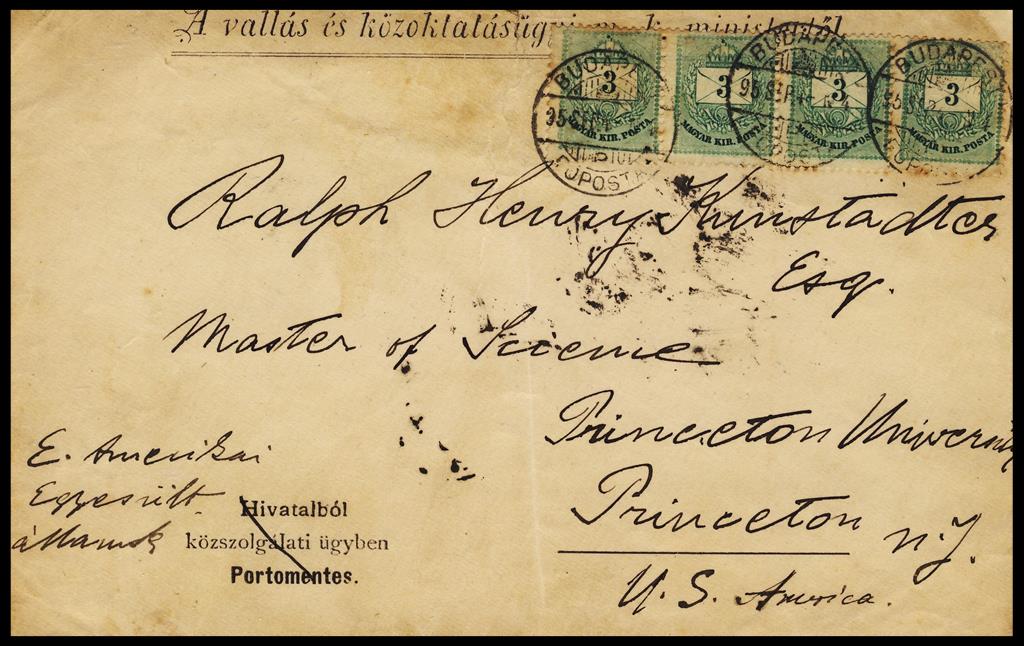 A vallás és közoktatásügyi m. k. ministertől
3 3 3 3
MAGYAR KIR. POSTA MAGYAR KIR. POSTA MAGYAR KIR. POSTA MAGYAR KIR. POSTA
BUDAPEST BUDAPEST
95 SEP
FŐPOSTA
Ralph Henry Kunstadter
Esq.
Master of Science
Princeton University
Princeton N.J.
U. S. America.
E. Amerikai
Egyesült
államok
Hivatalból
közszolgálati ügyben
Portomentes.